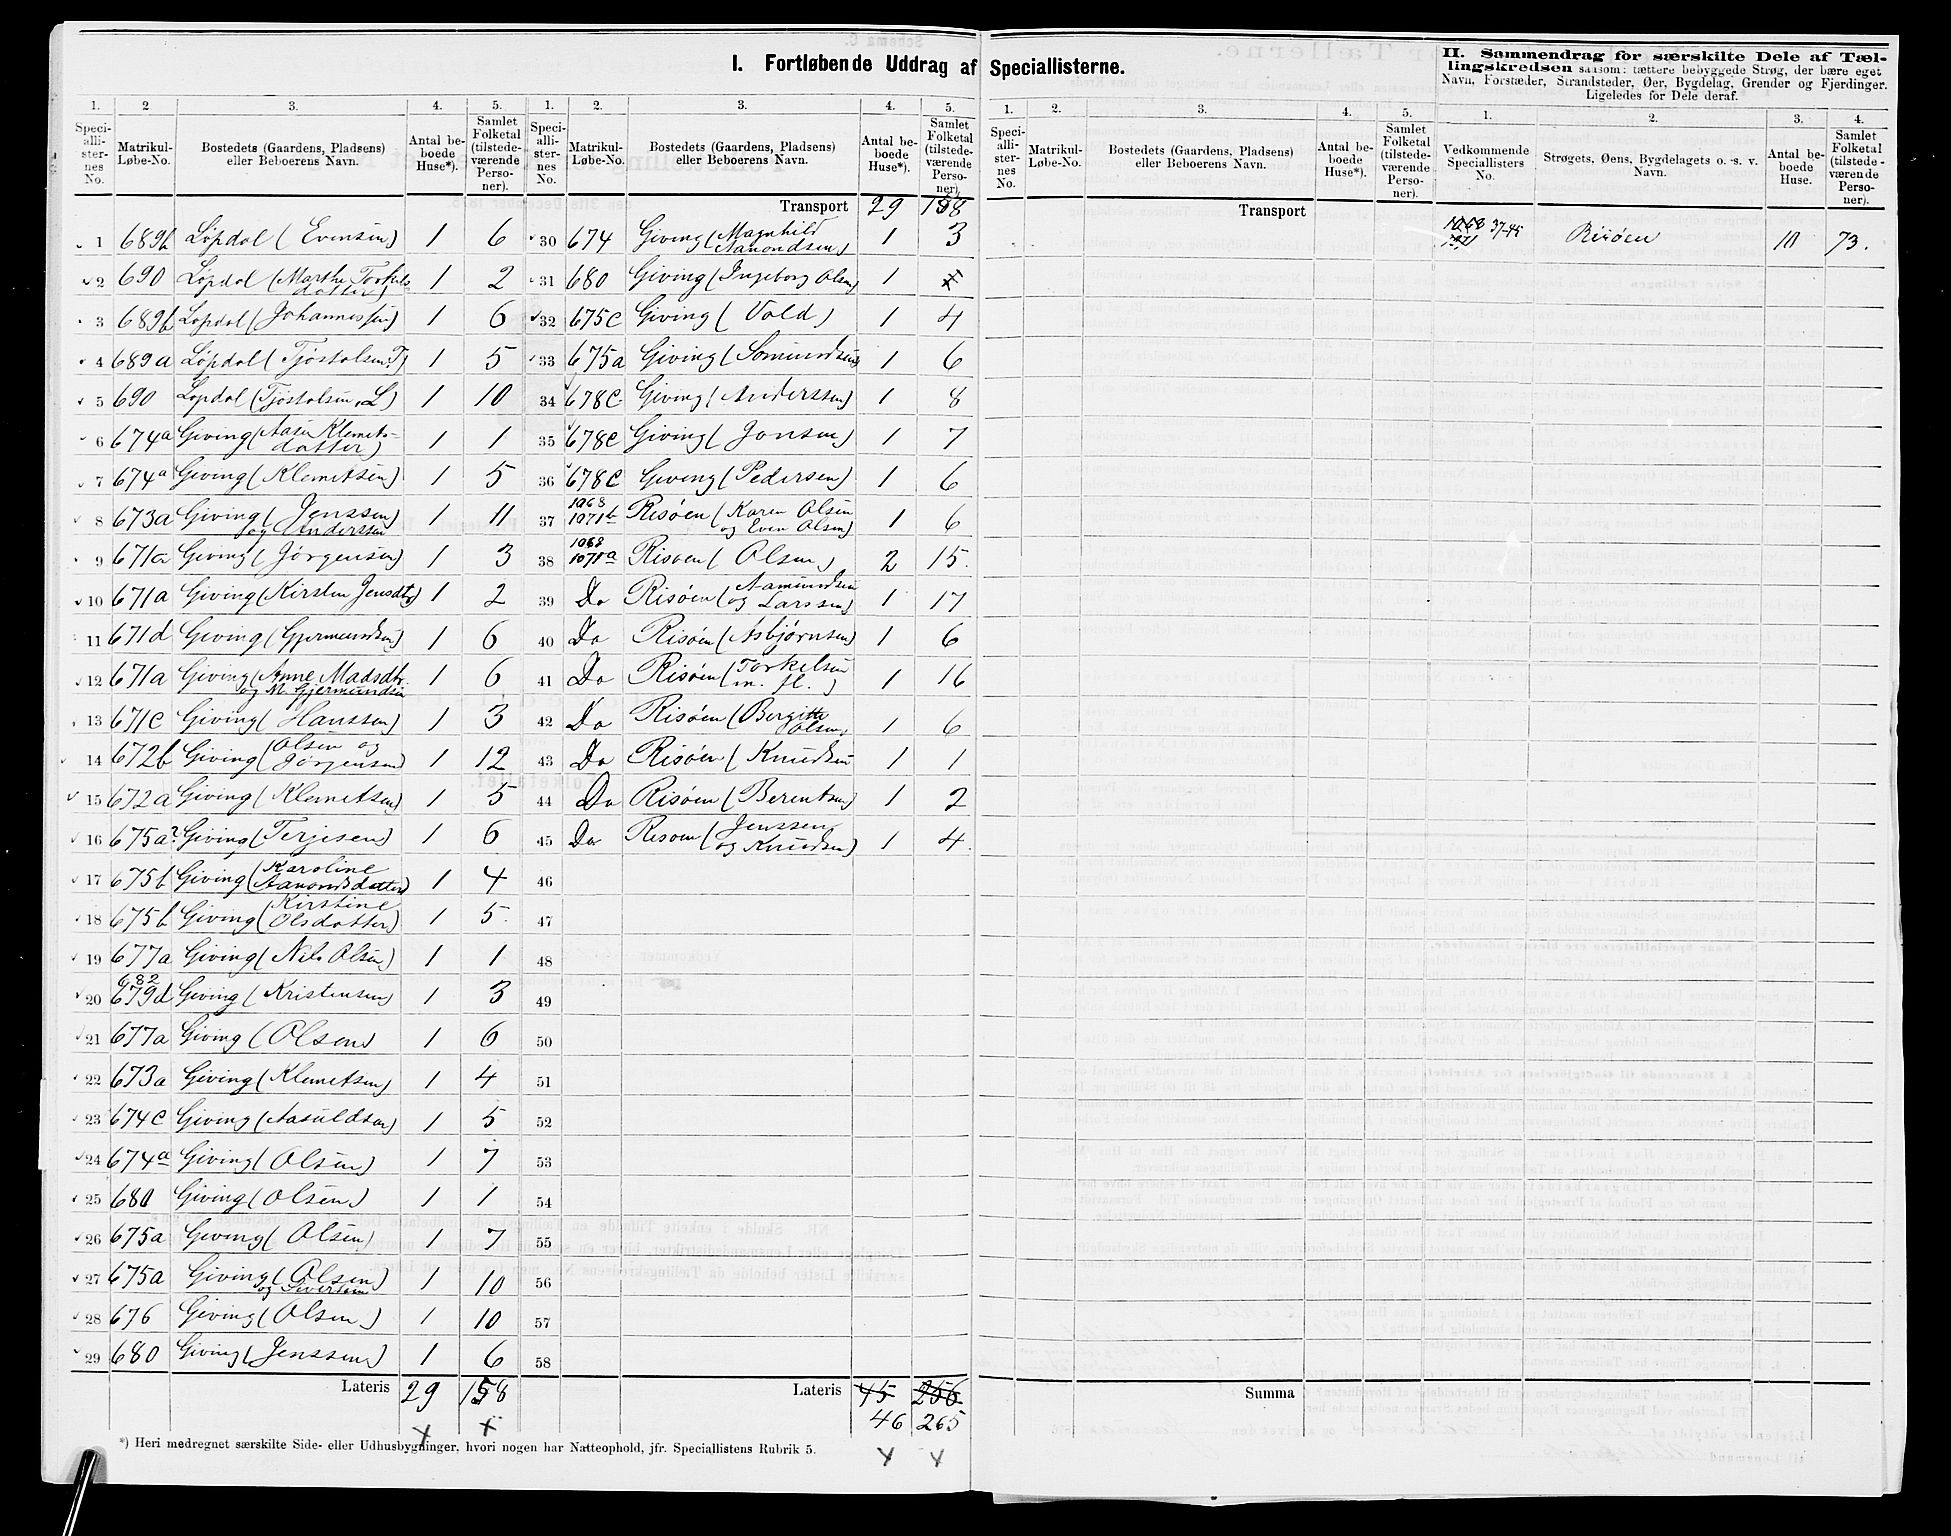 I. Fortløbende Uddrag af Speciallisterne.
1. 2 3. 4. 5.
Speciallisternes No. Matrikul-Løbe-No. Bostedets (Gaardens, Pladsens) eller Beboerens Navn. Antal beboede Huse*). Samlet Folketal (tilstedeværende Personer).
1 689b Löpdal (Evensen) 1 6
2 690 Löpdal (Marthe Torkilsdatter) 1 2
3 689b Lopdal (Johannessen) 1 6
4 689a Löpdal (Tjöstolsen T) 1 5
5 690 Lopdal (Tjöstolsen, L) 1 10
6 674a Giving (Aase Klemetsdatter) 1 1
7 674a Giving (Klemetsen) 1 5
8 673a Giving (Jenssen og Anderssen) 1 11
9 671a Giving (Jørgensen) 1 3
10 671a Giving (Kirsten Jensdtr) 1 2
11 671d Giving (Gjermundsen) 1 6
12 671a Giving (Anne Madsdtr. og M Gjermundsen) 1 6
13 671c Giving (Hanssen) 1 3
14 672b Giving (Olsen og Jørgensen) 1 12
15 672a Giving (Klemetsen) 1 5
16 675a? Giving (Terjesen) 1 6
17 675b Giving (Karoline Aanonsdatter) 1 4
18 675b Giving (Kirstine Olsdatter) 1 5.
19 677a Giving (Nils Olsen) 1 1
20 682 679d Giving (Kristensen) 1 3
21 677a Giving (Olsen) 1 6
22 673a Giving (Klemetsen) 1 4
23 674c Giving (Aasuldsen) 1 5
24 674a Giving (Olsen) 1 7
25 680 Giving (Olsen) 1 1
26 675a Giving (Olsen) 1 7
27 675a Giving (Olsen og Sivertsen) 1 10
28 676 Giving (Olsen) 1 10
29 680 Giving (Jenssen) 1 6
Lateris 29 158
*) Heri medregnet særskilte Side- eller Udhusbygninger, hvori nogen har Natteophold, jfr. Speciallistens Rubrik 5.
1. 2. 3. 4. 5.
Speciallisternes No. Matrikul-Løbe-No. Bostedets (Gaardens, Pladsens) eller Beboerens Navn. Antal beboede Huse*). Samlet Folketal (tilstedeværende Personer).
Transport 29 158
30 674 Giving (Magnhild Aanondsen) 1 3
31 680 Giving (Ingeborg Olsen) 1
32 675c Giving (Vold) 1 4
33 675a Giving (Somundsen) 1 6
34 678c Giving (Anderssen) 1 8
35 678c Giving (Jonsen) 1 7
36 678c Giving (Pedersen) 1 6
37 1068 1071b Risöen (Karen Olsen og Even Olsen) 1 6
38 1068 1071a Risoen (Olsen) 2 15.
39 Do Risöen (Aamundsen og Larssen) 1 17
40 Do Risöen (Asbjørnsen) 1 6
41 Do Risöen (Torkelsen m. fl.) 1 16
42 Do Risöen (Bergitte Olsen) 1 6
43 Do Risöen (Knudsen 1 1
44 Do Risöen (Berentsen) 1 2
45 Do Risoen (Jenssen og Knudsen) 1 4.
46
47
48
49
50
51
52
53
54
55
56
57
58
Lateris 45 256
46 265
1. 2. 3. 4. 5.
Speciallisternes No. Matrikul-Løbe-No. Bostedets (Gaardens, Pladsens) eller Beboerens Navn. Antal beboede Huse*). Samlet Folketal (tilstedeværende Personer).
Transport
Summa
II. Sammendrag for særskilte Dele af Tællingskredsen saasom: tættere bebyggede Strøg, der bære eget Navn, Forstæder, Strandsteder, Øer, Bygdelag, Grender og Fjerdinger. Ligeledes for Dele deraf.
1. 2. 3. 4.
Vedkommende Speciallisters No. Strøgets, Øens, Bygdelagets o. s. v. Navn. Antal beboede Huse. Samlet Folketal (tilstedeværende Personer).
1068 1071 37-45 Risöen 10 73.